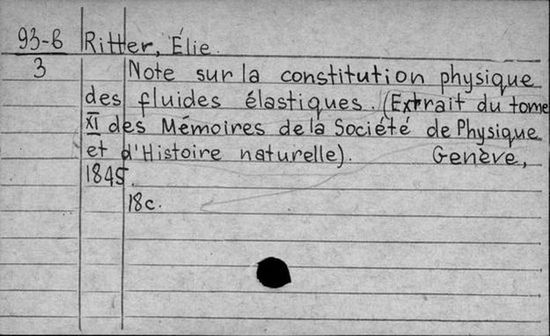 93-B Ritter, Élie.
3 Note sur la constitution physique
des fluides élastiques. (Extrait du tome
XI des Mémoires de la Société de Physique
et d'Histoire naturelle). Genève,
1845.
18c.